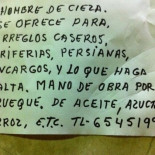 HOMBRE DE CIEZA.
SE OFRECE PARA,
RREGLOS CASEROS,
RIFERIAS, PERSIANAS,
NCARGOS, Y LO QUE HAGA
ALTA. MANO DE OBRA POR
RUEQUE, DE ACEITE, AZUCA
RROZ, E.T.C. TL-6545199